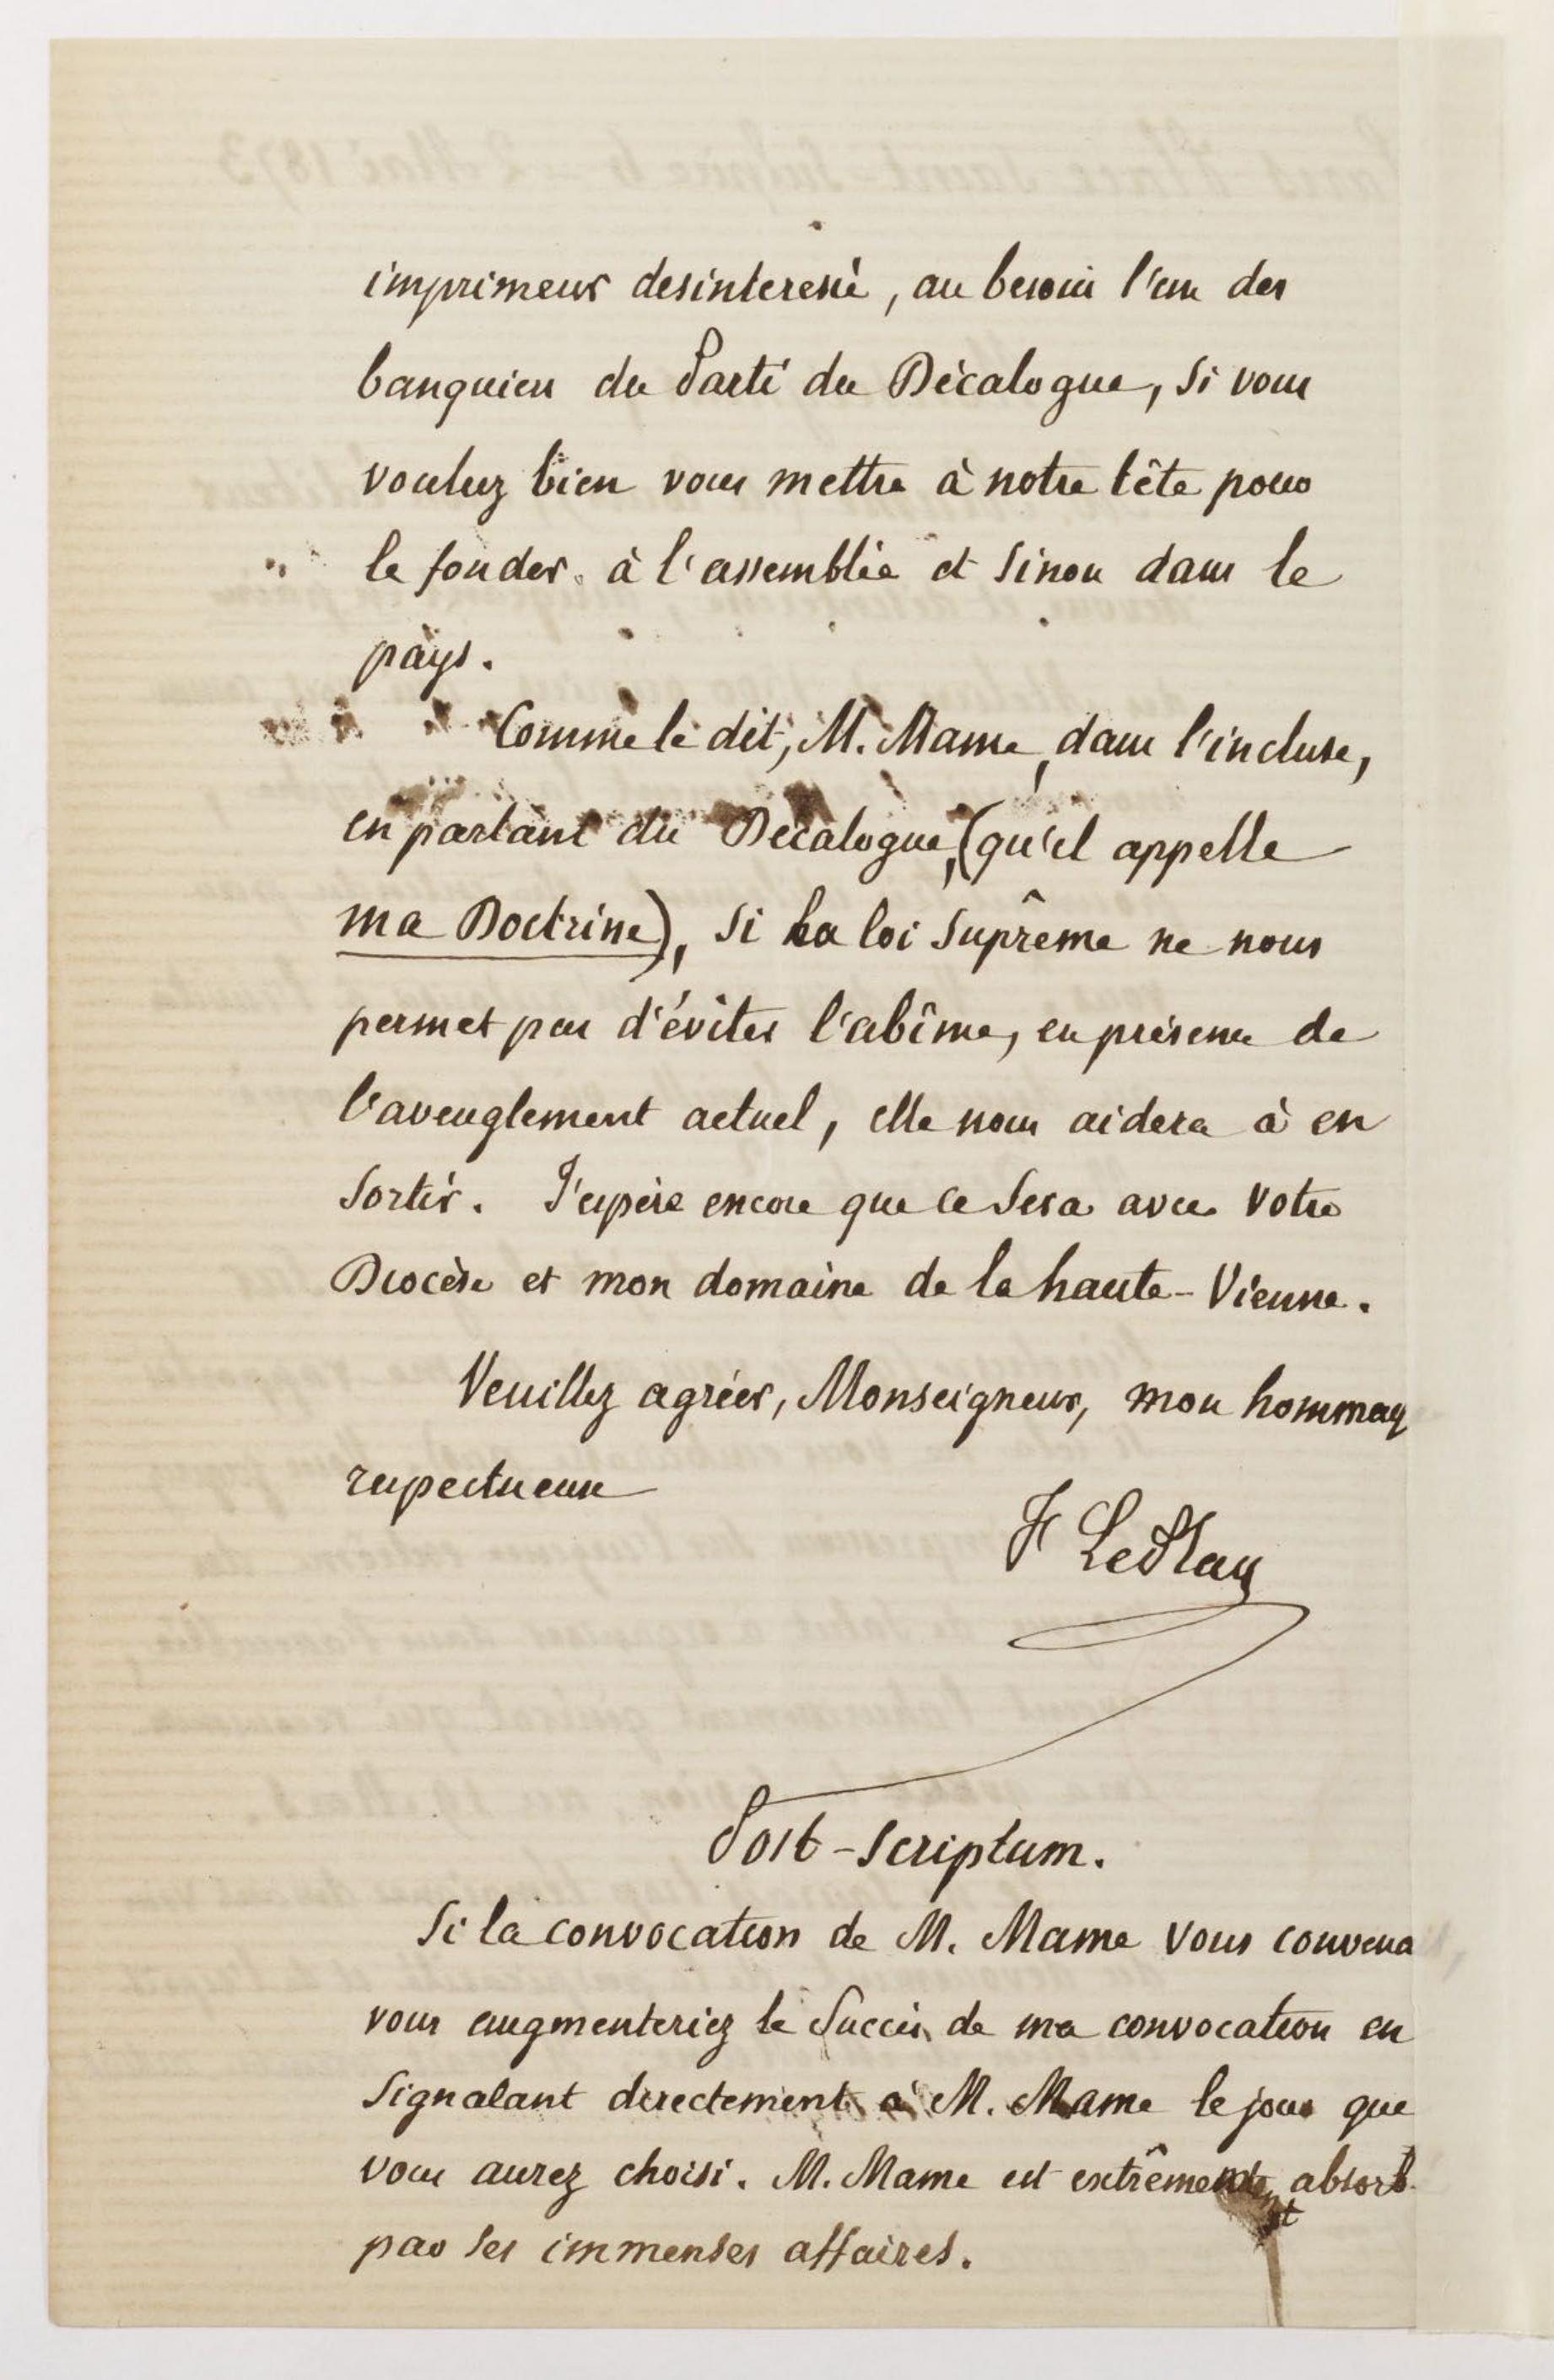 imprimeur desinteressé, au besoin l'un des
banquiers du Parti du Décalogue, si vous
voulez bien vous mettre à notre tête pour
le fonder à l'assemblée et sinon dans le
pays.
Comme le dit, M. Mame, dans l'incluse,
en parlant du Décalogue, (qu'il appelle
ma Doctrine), si la loi Suprême ne nous
permet pas d'éviter l'abîme, en présence de
l'aveuglement actuel, elle nous aidera à en
sortir. J'espère encore que ce sera avec votre
Diocèse et mon domaine de la haute-Vienne.
Veuillez agréer, Monseigneur, mon hommage
respectueux
F Le Play
Post-scriptum.
Si la convocation de M. Mame vous convena
vous augmenteriez le succès de ma convocation en
signalant directement à M. Mame le jour que
vous aurez choisi. M. Mame est extrêmement absorb
par ses immenses affaires.